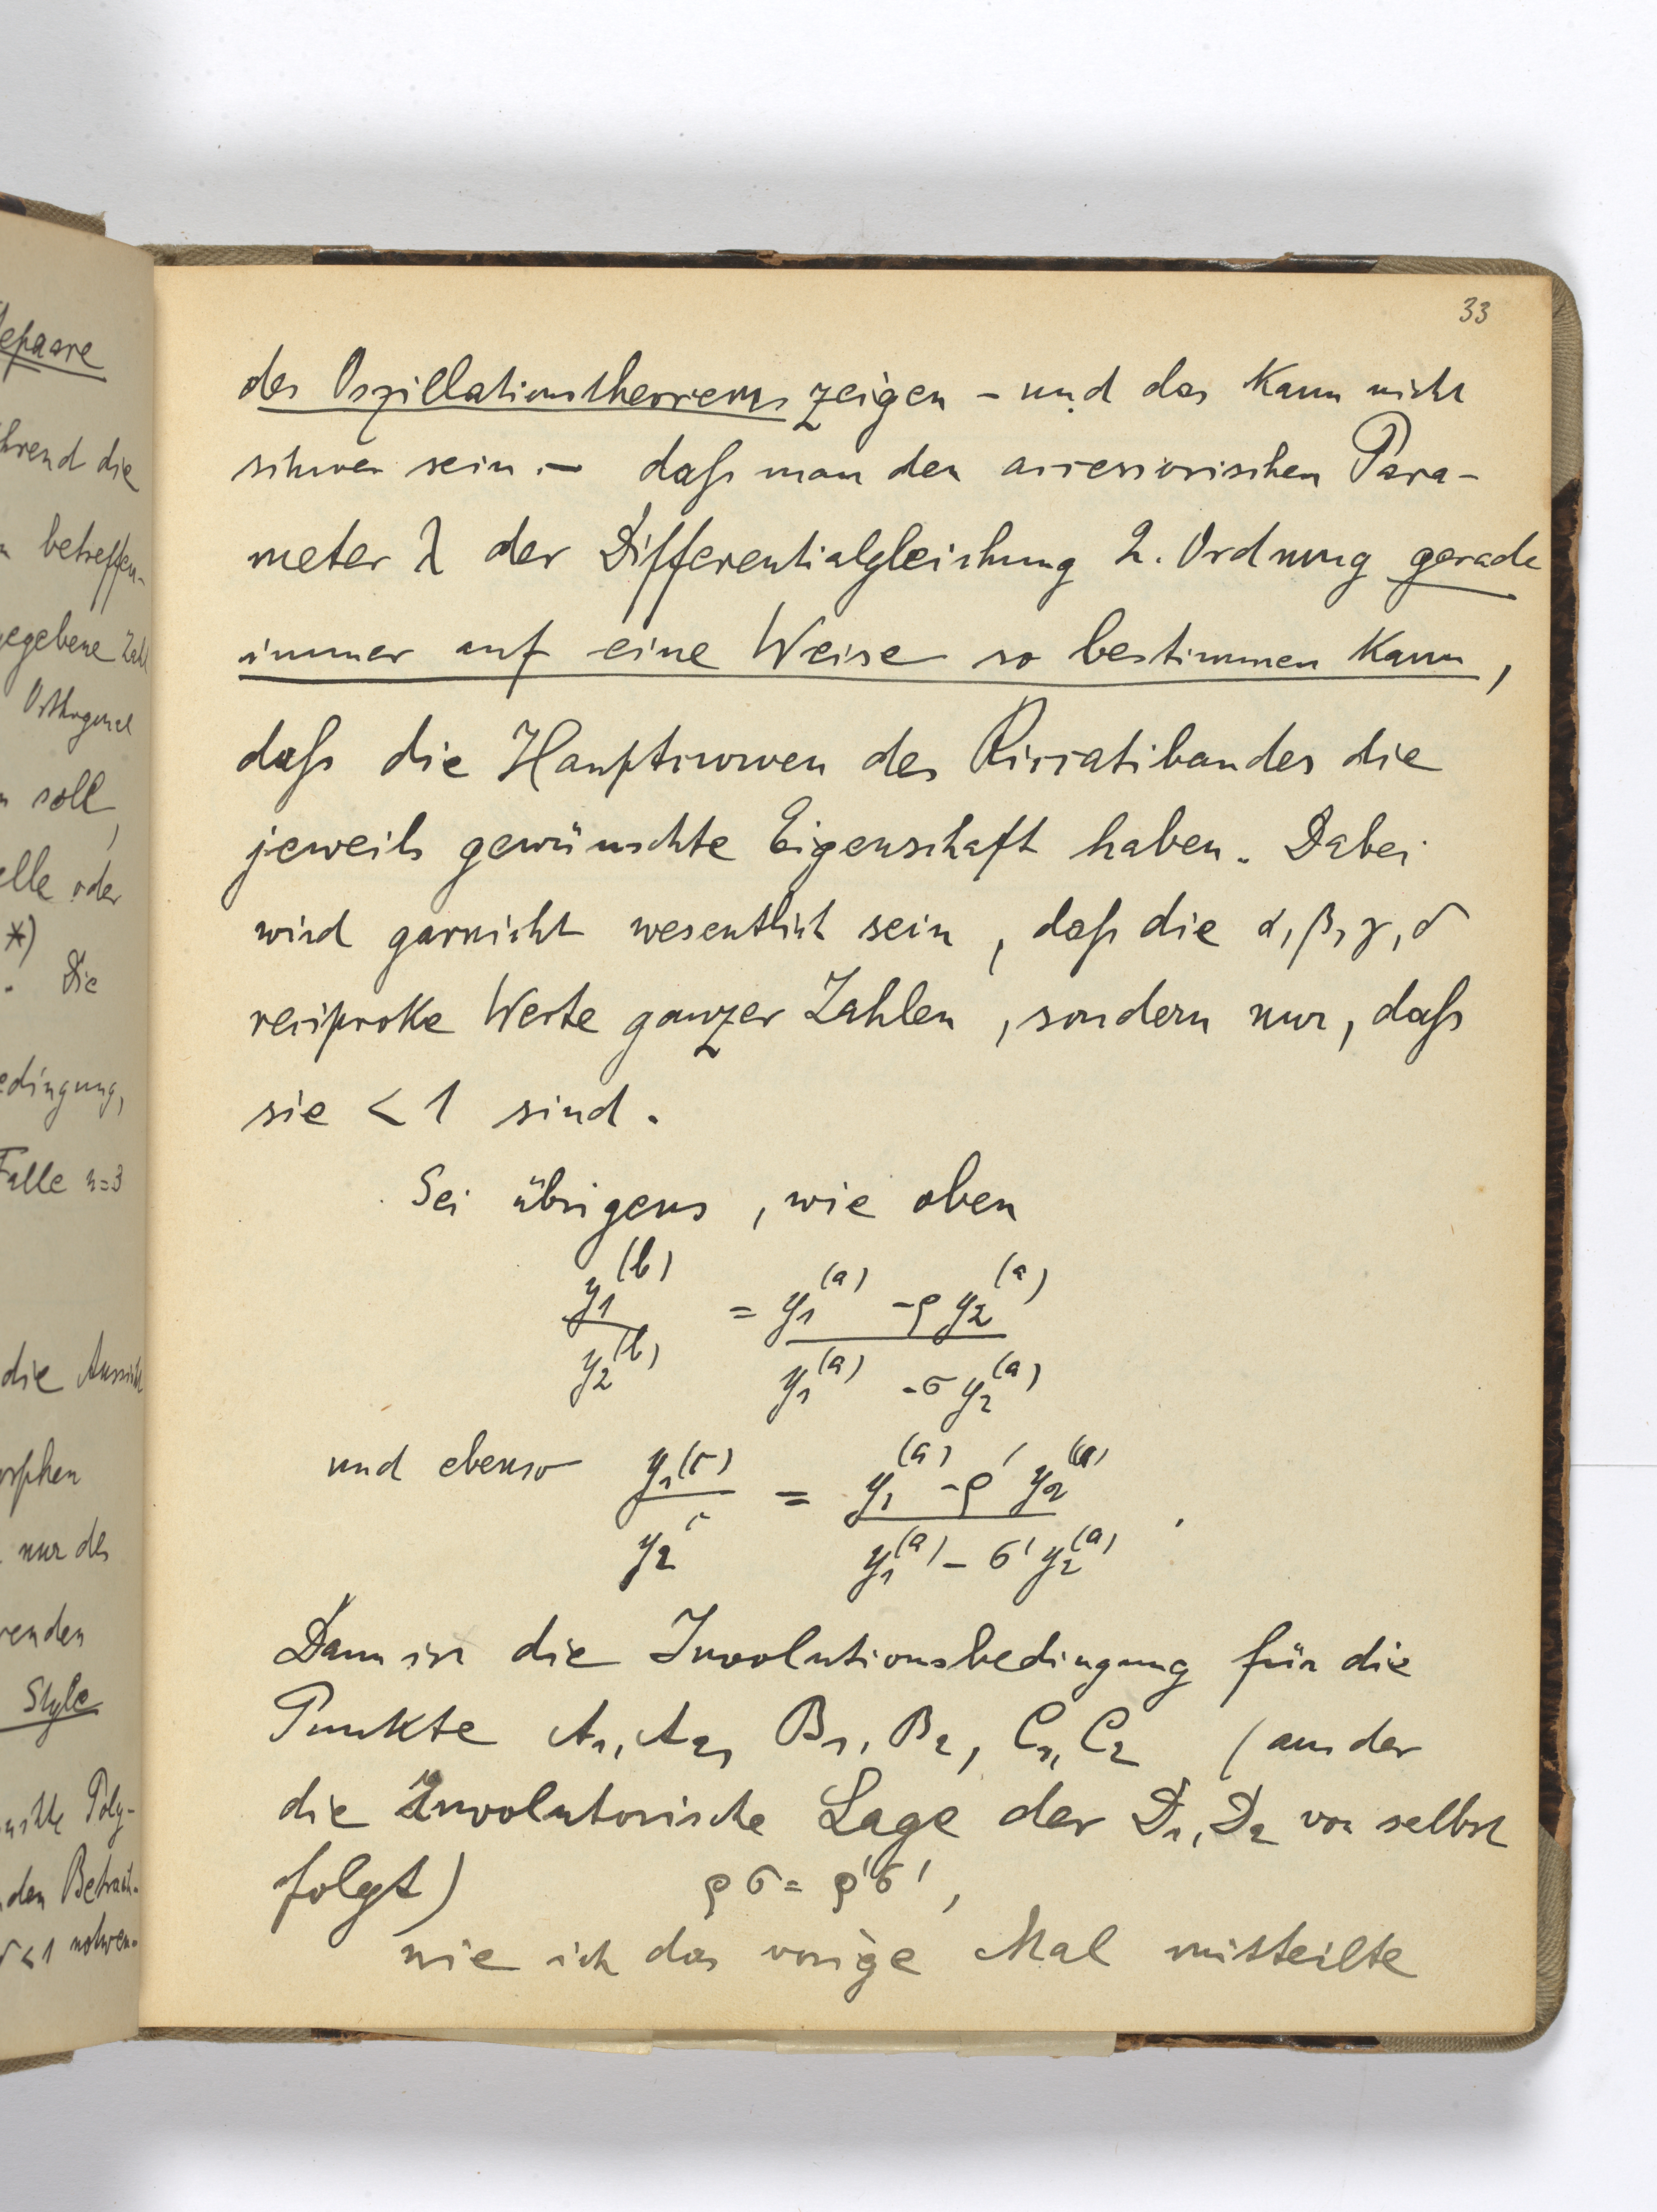 33
des Oszillationstheorems zeigen – und das kann nicht
schwer sein. – daß man den accessorischen Para-
meter λ der Differentialgleichung 2. Ordnung gerade
immer auf eine Weise so bestimmen kann,
daß die Hauptcurven des Riccatibandes die
jeweils gewünschte Eigenschaft haben. Dabei
wird garnicht wesentlich sein, daß die α, β, γ, δ
reciproke Werte ganzer Zahlen, sondern nur, daß
sie < 1 sind.
Sei übrigens, wie oben
y₁^(b) / y₂^(b) = y₁^(a) - ρ y₂^(a) / y₁^(a) - σ y₂^(a)
und ebenso y₁^(c) / y₂^c = y₁^(a) - ρ' y₂^(a) / y₁^(a) - σ' y₂^(a) .
Dann ist die Involutionsbedingung für die
Punkte A₁, A₂, B₁, B₂, C₁, C₂ (aus der
die Involutorische Lage der D₁, D₂ von selbst
folgt) ρσ = ρ'σ',
wie ich das vorige Mal mitteilte
epaare
hrend die
betreffen-
gegebene Zahl
Orthogonal
soll,
elle oder
*)
. Die
edingung,
Falle n=3
die Aussicht
orphen
nur des
renden
Style
Poly-
den Betrach-
< 1 notwen-